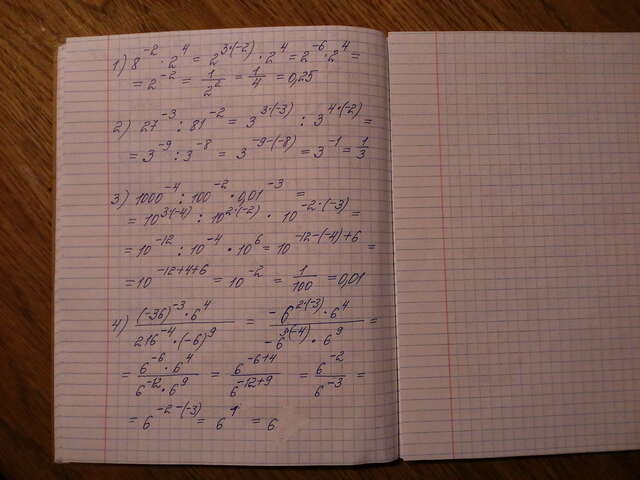 1) 8^-2 · 2^4 = 2^3·(-2) · 2^4 = 2^-6 · 2^4 =
= 2^-2 = 1/2^2 = 1/4 = 0,25
2) 27^-3 : 81^-2 = 3^3·(-3) : 3^4·(-2) =
= 3^-9 : 3^-8 = 3^-9-(-8) = 3^-1 = 1/3
3) 1000^-4 : 100^-2 · 0,01^-3 =
= 10^3·(-4) : 10^2·(-2) · 10^-2·(-3) =
= 10^-12 : 10^-4 · 10^6 = 10^-12-(-4)+6 =
= 10^-12+4+6 = 10^-2 = 1/100 = 0,01
4) (-36)^-3 · 6^4 / 216^-4 · (-6)^9 = -6^2·(-3) · 6^4 / -6^3·(-4) · 6^9 =
= 6^-6 · 6^4 / 6^-12 · 6^9 = 6^-6+4 / 6^-12+9 = 6^-2 / 6^-3 =
= 6^-2-(-3) = 6^1 = 6